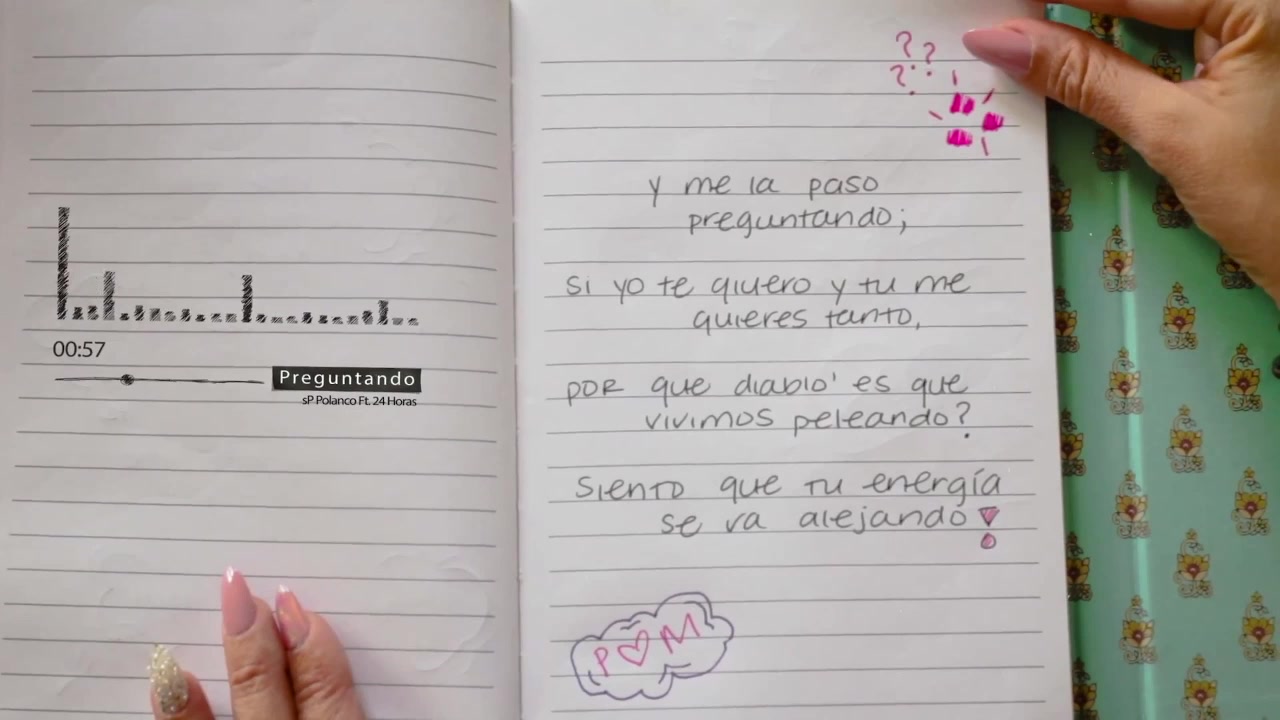 00:57
Preguntando
sP Polanco Ft. 24 Horas
? ? ?
y me la paso
preguntando;
si yo te quiero y tu me
quieres tanto,
por que diablo' es que
vivimos peleando?
siento que tu energía
se va alejando!
P♡M